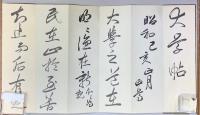 大學帖
昭和己亥
大學之道在
明明德在新
民在止於至善
知止而后有